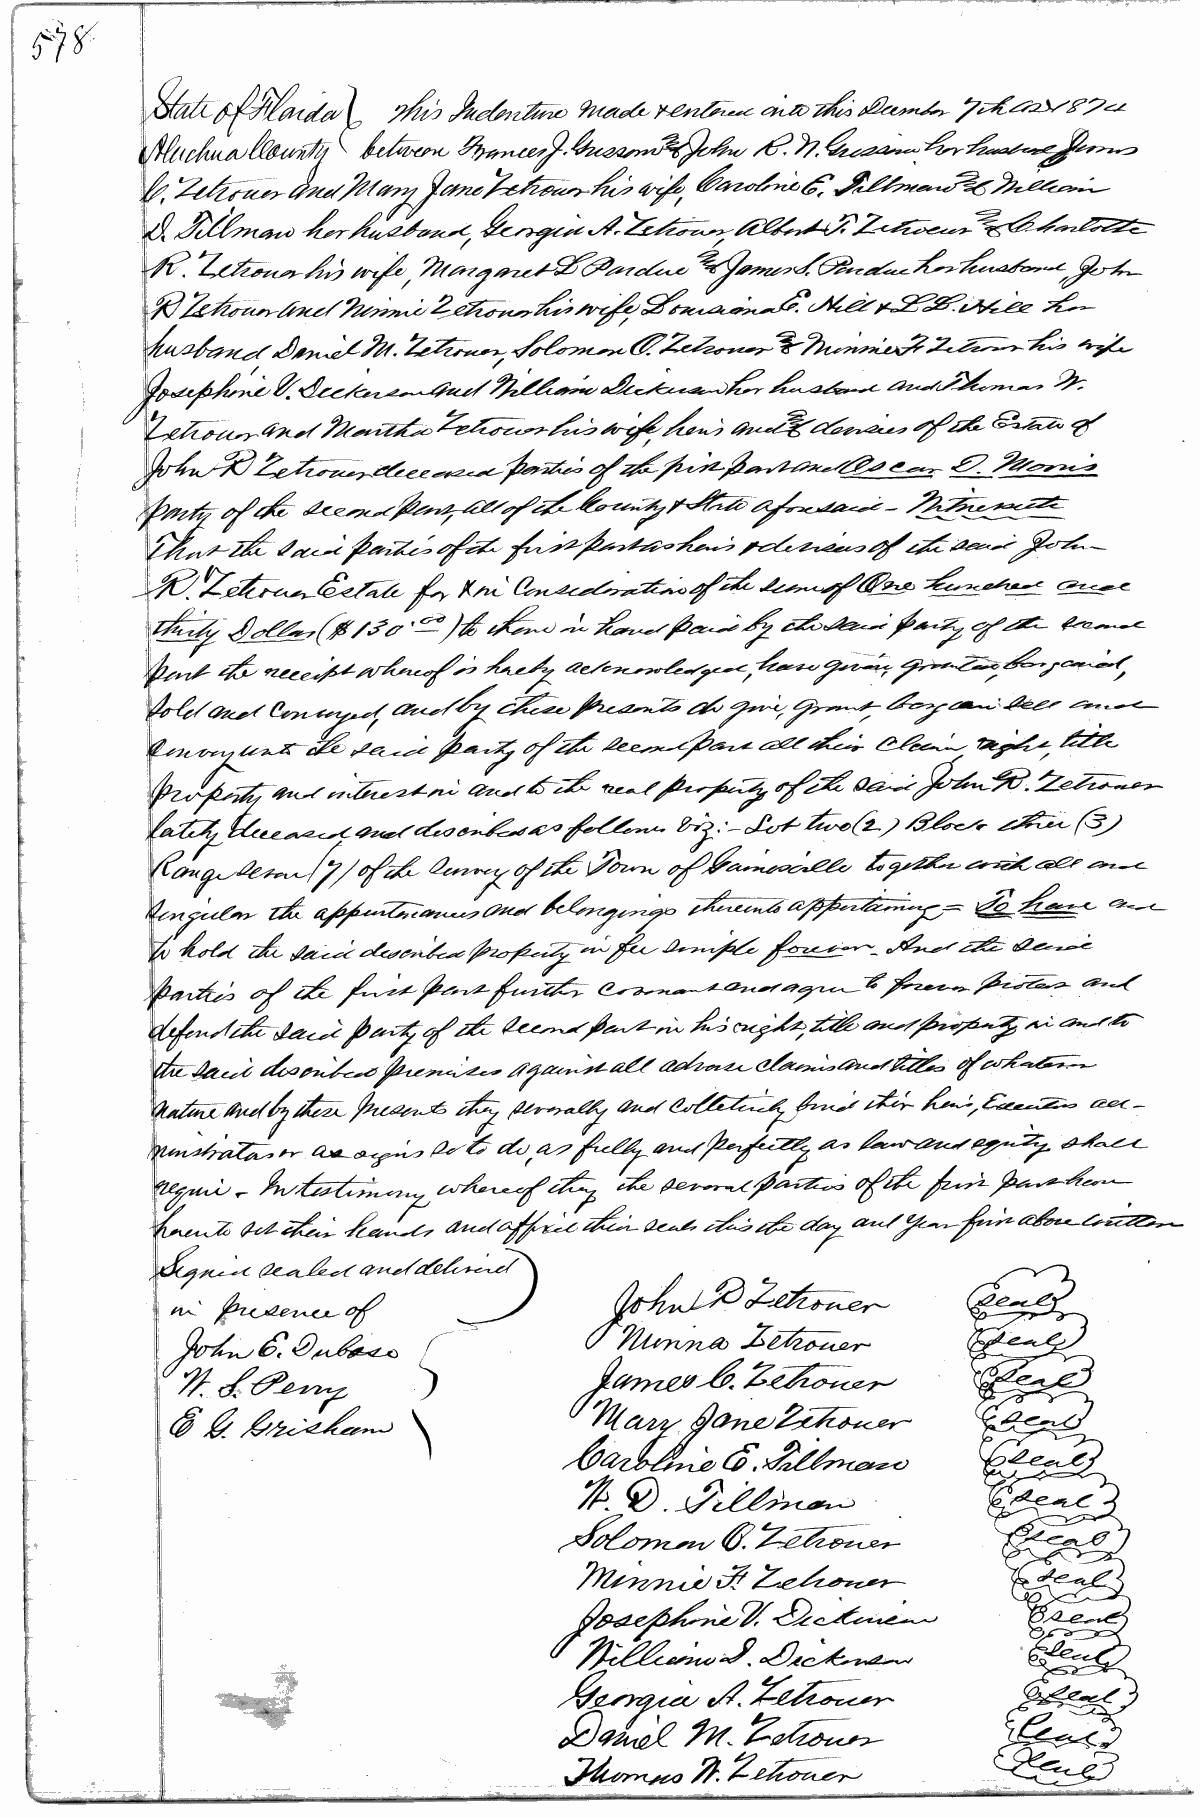 578
State of Florida } This Indenture made & entered into this December 7th AD 1874
Alachua County } between Frances J. Grissom & John R. N. Grissom her husband James
C. Zetrouer and Mary Jane Zetrouer his wife, Caroline E. Tillman & William
D. Tillman her husband, Georgia A. Zetrouer, Albert T. Zetrouer & Charlotte
R. Zetrouer his wife, Margaret L Pardue & James S. Pardue her husband, John
R Zetrouer and Ninnie Zetrouer his wife, Louisiana E. Hill & L L. Hill her
husband, Daniel M. Zetrouer, Solomon O. Zetrouer & Minnie F Zetrouer his wife
Josephine V. Dickerson and William Dickerson her husband and Thomas W.
Zetrouer and Martha Zetrouer his wife, heirs and devisees of the Estate of
John R Zetrouer deceased parties of the first part and Oscar D. Morris
party of the second part, all of the County & State aforesaid - Witnesseth
That the said parties of the first part as heirs & devisees of the said John
R. Zetrouer Estate for & in Consideration of the sum of One hundred and
thirty Dollars ($130.00) to them in hand paid by the said party of the second
part the receipt whereof is hereby acknowledged, have given, granted, bargained,
sold and conveyed, and by these presents do give, grant, bargain sell and
convey unto the said party of the second part all their claim, right, title
property and interest in and to the real property of the said John R. Zetrouer
lately deceased, and described as follows viz:- Lot two (2) Block three (3)
Range seven (7) of the survey of the Town of Gainesville together with all and
singular the appurtenances and belongings thereunto appertaining = To have and
to hold the said described property in fee simple forever - And the said
parties of the first part further covenant and agree to forever protect and
defend the said party of the second part in his right, title and property in and to
the said described premises against all adverse claims and titles of whatever
nature and by these presents they severally and collectively bind their heirs, Executors ad-
ministrators or assigns so to do, as fully and perfectly as law and equity shall
require - In testimony whereof they the several parties of the first part have
hereunto set their hands and affixed their seals this the day and year first above written
Signed sealed and delivered
in presence of
John E. Dubose
W. S. Perry
E G. Grisham
John R Zetrouer Seal
Ninna Zetrouer Seal
James C. Zetrouer Seal
Mary Jane Zetrouer Seal
Caroline E. Tillman Seal
W. D. Tillman Seal
Solomon O. Zetrouer Seal
Minnie F. Zetrouer Seal
Josephine V. Dickinson Seal
William D. Dickerson Seal
Georgia A. Zetrouer Seal
Daniel M. Zetrouer Seal
Thomas W. Zetrouer Seal